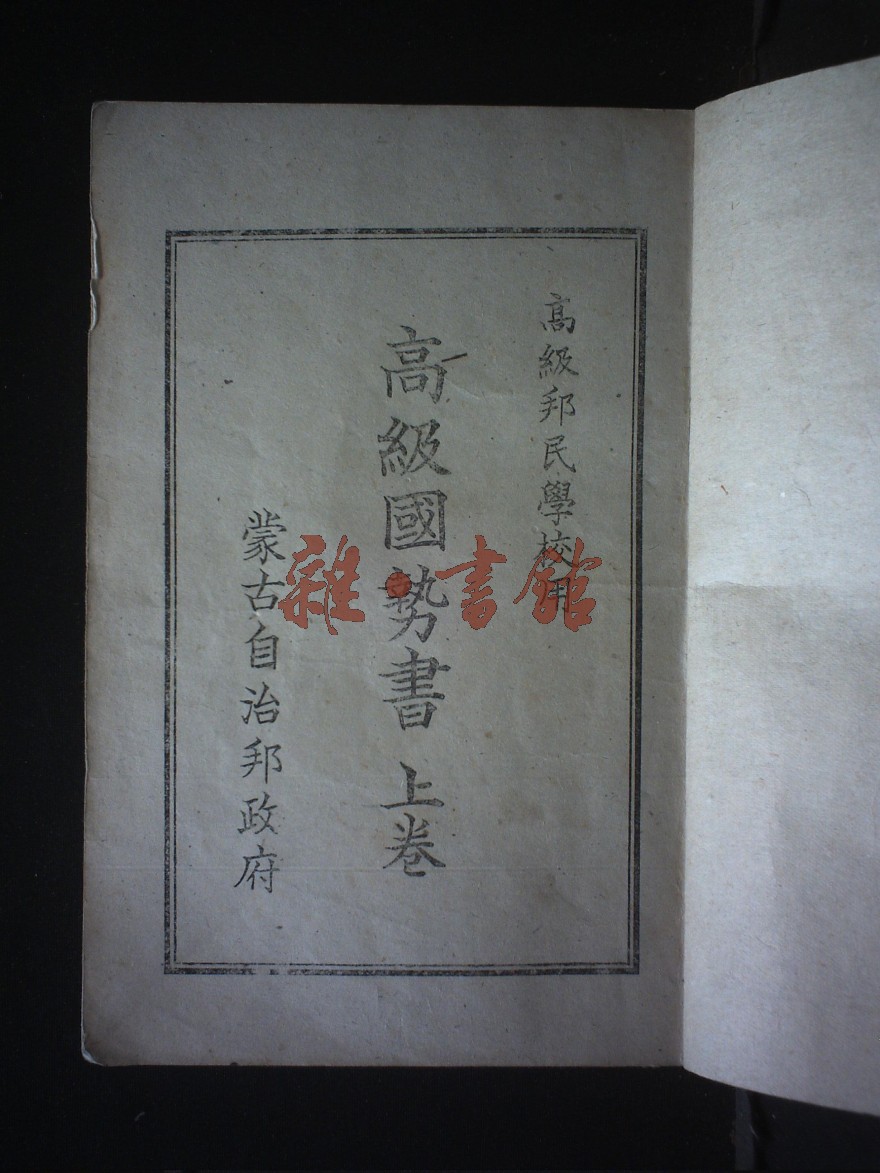 高級邦民學校用
高級國勢書 上卷
蒙古自治邦政府
雜書館